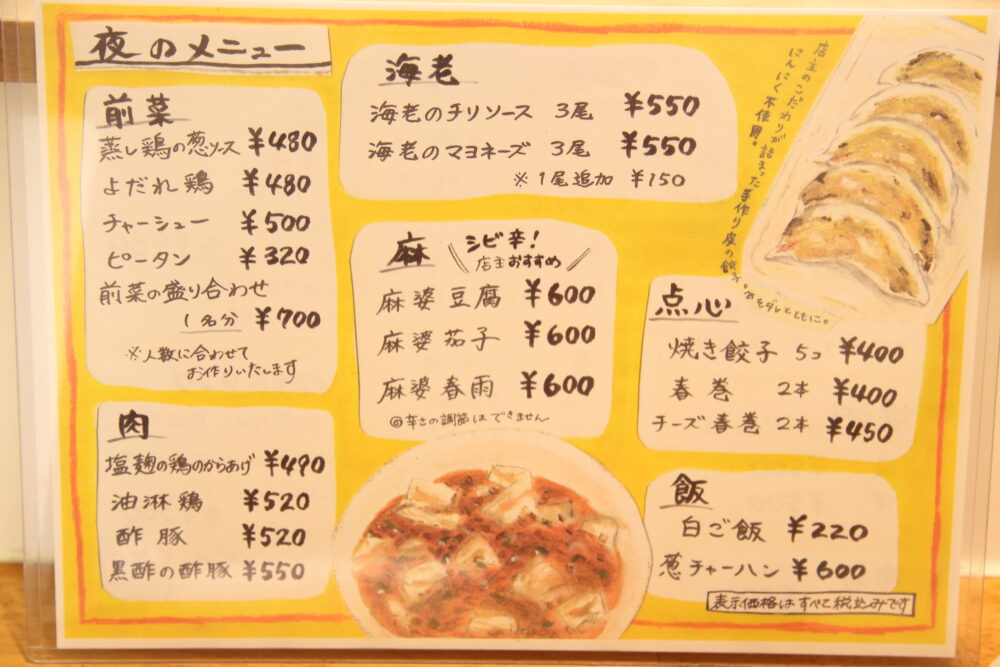 夜のメニュー
前菜
蒸し鶏の葱ソース ¥480
よだれ鶏 ¥480
チャーシュー ¥500
ピータン ¥320
前菜の盛り合わせ
1名分 ¥700
※人数に合わせて
お作りいたします
肉
塩麹の鶏のからあげ ¥490
油淋鶏 ¥520
酢豚 ¥520
黒酢の酢豚 ¥550
海老
海老のチリソース 3尾 ¥550
海老のマヨネーズ 3尾 ¥550
※1尾追加 ¥150
麻
シビ辛!
店主おすすめ
麻婆豆腐 ¥600
麻婆茄子 ¥600
麻婆春雨 ¥600
◎辛さの調節はできません
店主のこだわりが詰まった手作り皮の餃子。
にんにく不使用。
点心
焼き餃子 5コ ¥400
春巻 2本 ¥400
チーズ春巻 2本 ¥450
飯
白ご飯 ¥220
葱チャーハン ¥600
表示価格はすべて税込みです